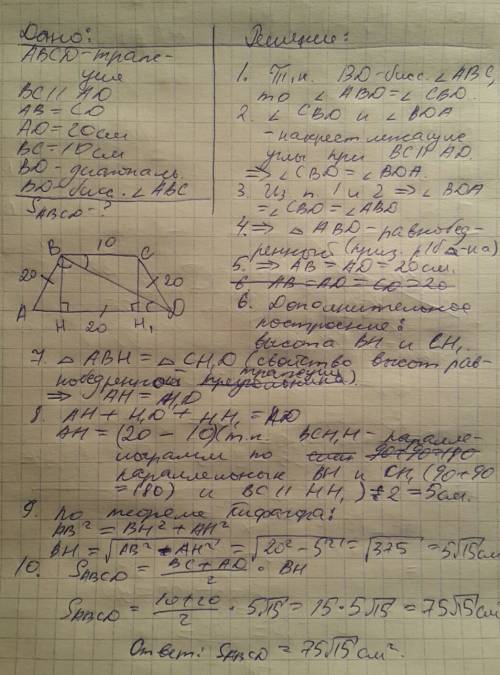 Дано:
ABCD - трапе-
ция
BC || AD
AB = CD
AD = 20 см
BC = 10 см
BD - диагональ
BD - бисс. ∠ABC
S_ABCD - ?
B 10 C
20 20
A H 20 H₁ D
Решение:
1. Т.к. BD - бисс. ∠ABC,
то ∠ABD = ∠CBD.
2. ∠CBD и ∠BDA
- накрест лежащие
углы при BC || AD.
⇒ ∠CBD = ∠BDA.
3. Из п. 1 и 2 ⇒ ∠BDA
= ∠CBD = ∠ABD
4. ⇒ △ABD - равнобед-
ренный (приз. р/б △-ка)
5. ⇒ AB = AD = 20 см.
6. AB = AD = CD = 20
6. Дополнительное
построение:
высота BH и CH₁.
7. △ABH = △CH₁D (свойство высот рав-
нобедренной трапеции).
⇒ AH = H₁D
8. AH + H₁D + HH₁ = AD
AH = (20 - 10)(т.к. BCH₁H - паралле-
лограмм по 90+90=180
параллельных BH и CH₁ (90+90
= 180) и BC || HH₁) : 2 = 5 см.
9. По теореме Пифагора:
AB² = BH² + AH²
BH = √(AB² - AH²) = √(20² - 5²) = √375 = 5√15 см
10. S_ABCD = (BC + AD)/2 · BH
S_ABCD = (10+20)/2 · 5√15 = 15 · 5√15 = 75√15 см²
Ответ: S_ABCD = 75√15 см².